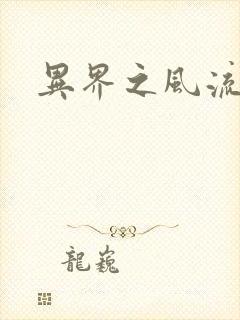 異界之風流
龍巍